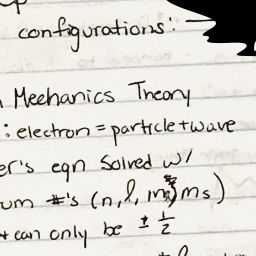 configurations: —
Mechanics Theory
: electron = particle + wave
er's eqn Solved w/
um #'s (n, l, ml, ms)
can only be ± 1/2